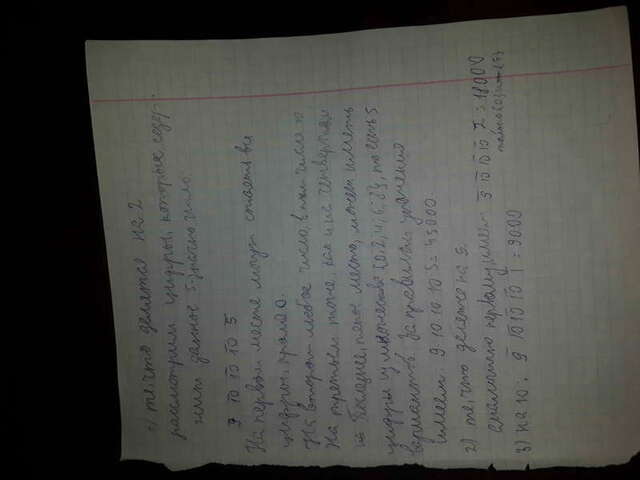 1) те, что делятся на 2
рассмотрим цифры, которые содер-
жит данное 5-значно число
9 10 10 10 5
На первом месте могут стоять все
цифры, кроме 0.
На втором любое число, в том числе и 0
На третьем тоже, как и на четвертом
На последнее, пятое место, может иметь
цифры из множества {0,2,4,6,8}, то есть 5
вариантов. За правилом умножения
имеем: 9·10·10·10·5=45000
2) те, что делятся на 5.
аналогично первому, имеем 9 10 10 10 2 = 18000
3) на 10: 9 10 10 10 1 = 9000